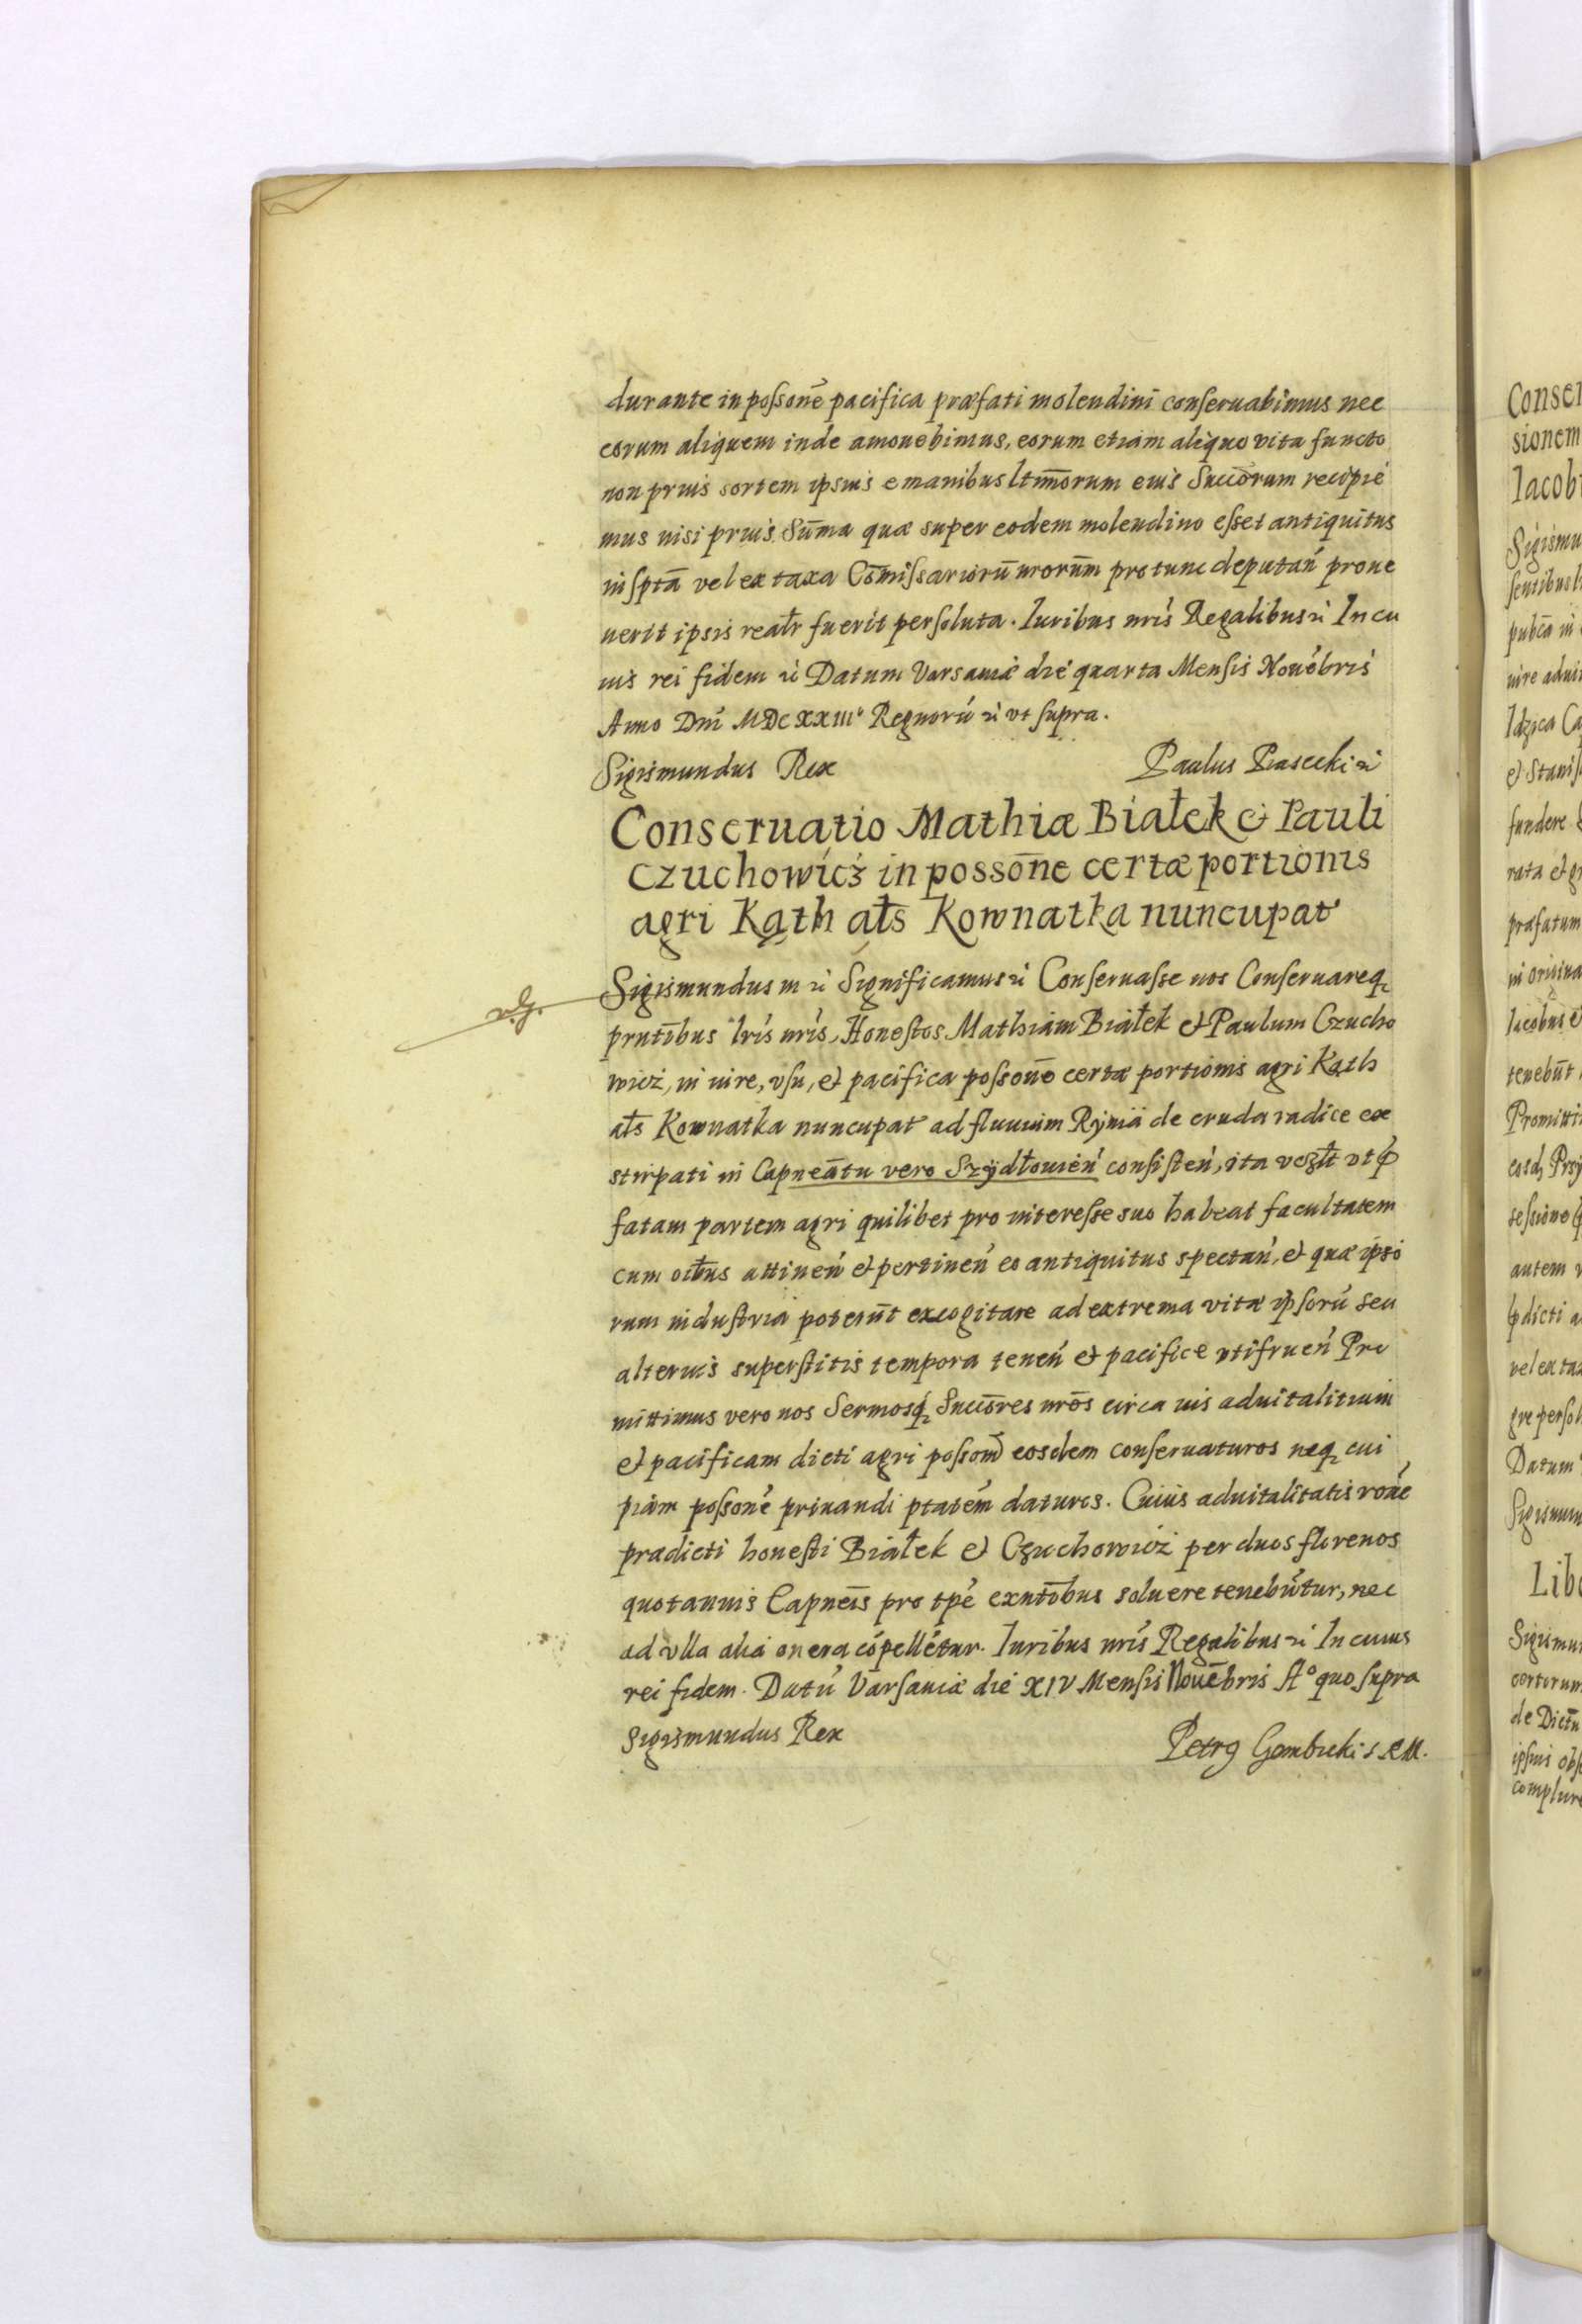 durante in possone pacifica præfati molendini conseruabimus nec
eorum aliquem inde amouebimus, eorum etiam aliquo vita functo
non prius sortem ipsius e manibus ltmorum eius Succorum recipie
mus nisi prius Suma quæ super eodem molendino esset antiquitus
inspta vel ex taxa Comissariorū nrorum pro tunc deputań proue
uerit ipsis realr fuerit persoluta. Iuribus nris Regalibus etc In cu
ius rei fidem etc Datum Varsauiæ die quarta Mensis Nouebris
Anno Dni MDCXXIII° Regnorū etc vt supra.
Sigismundus Rex Paulus Piasecki etc
Conseruatio Mathiæ Białek et Pauli
Czuchowicz in possone certæ portionis
agri Kąth ałs Kownatka nuncupat
Sigismundus III etc Significamus etc Conseruasse nos Conseruareq
pntibus lris nris, Honestos Mathiam Białek et Paulum Czucho
wicz, in iure, vsu, et pacifica possone certæ portionis agri Kąth
ałs Kownatka nuncupat ad fluuium Rynia de cruda radice ex
stirpati in Capneatu vero Szydłouień consisteń, ita vt p
fatam partem agri quilibet pro interesse suo habeat facultatem
cum oibus attineń et pertineń eo antiquitus spectań, et quæ ipso
rum industria poterūt excogitare ad extrema vitæ ipsorū seu
alterius superstitis tempora teneń et pacifice vtifrueń Pro
mittimus vero nos Sermosq Succores nros circa ius aduitalitium
et pacificam dicti agri possom eosdem conseruaturos neq cui
piam possone priuandi ptatem daturos. Cuius aduitalitatis rone
prædicti honesti Białek et Czuchowicz per duos florenos
quotannis Capneis pro tpe exntibus soluere tenebūtur, nec
ad vlla alia onera cōpellētur. Iuribus nris Regalibus etc In cuius
rei fidem. Datū Varsauiæ die XIV Mensis Nouēbris A° quo supra
Sigismundus Rex Petrg Gembicki S RM.